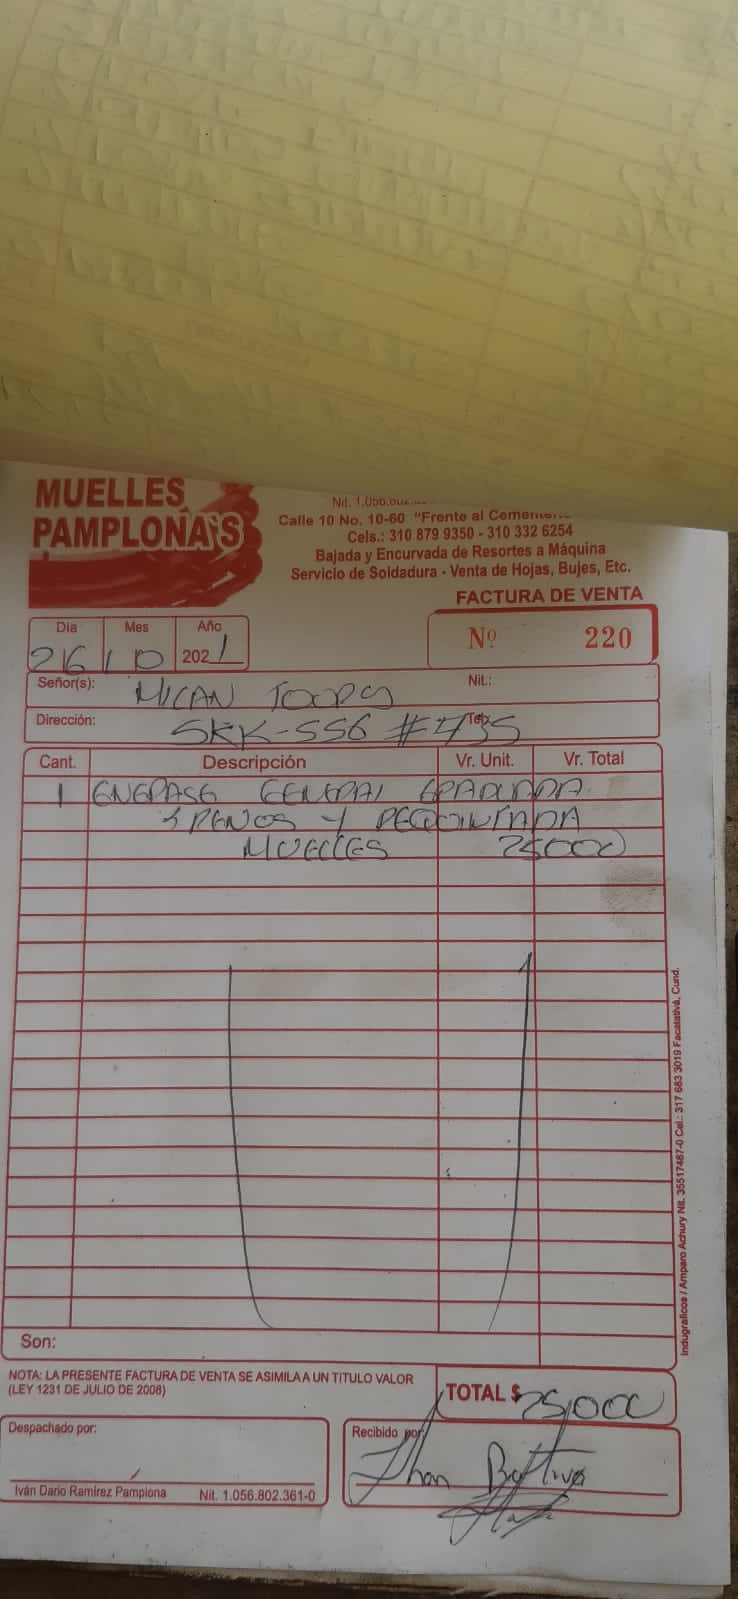 MUELLES
PAMPLONA'S
Nit. 1.056.802.
Calle 10 No. 10-60 "Frente al Cemente
Cels.: 310 879 9350 - 310 332 6254
Bajada y Encurvada de Resortes a Máquina
Servicio de Soldadura - Venta de Hojas, Bujes, Etc.
FACTURA DE VENTA
Dia Mes Año
26 10 2021
Nº 220
Señor(s): MICAN TOOPS Nit.:
Dirección: SKK-556 #435 Tel.:
Cant. Descripción Vr. Unit. Vr. Total
1 ENGPASE GENERAL GPADUADA
Y PEQUINTADA
MUELLES 25000
Son:
NOTA: LA PRESENTE FACTURA DE VENTA SE ASIMILA A UN TITULO VALOR
(LEY 1231 DE JULIO DE 2008)
TOTAL $ 25,000
Despachado por:
Iván Dario Ramírez Pamplona Nit. 1.056.802.361-0
Recibido por:
Jhon
Indugraficos / Amparo Achury Nit. 35517487-0 Cel.: 317 683 3019 Facatativá, Cund.